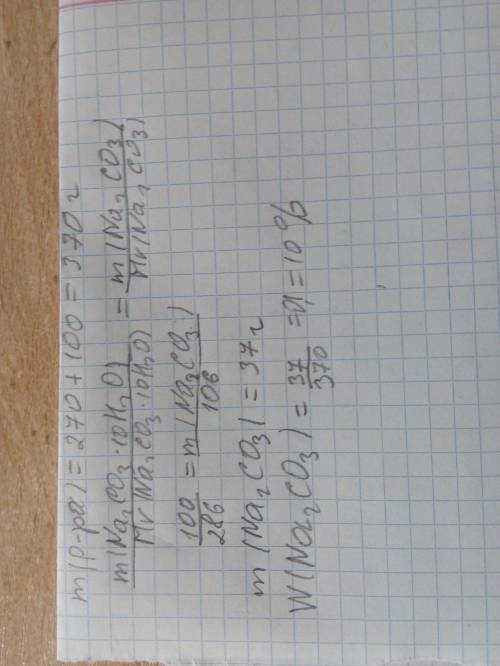 m(р-ра) = 270 + 100 = 370 г
m(Na₂CO₃·10H₂O) / Mr(Na₂CO₃·10H₂O) = m(Na₂CO₃) / Mr(Na₂CO₃)
100 / 286 = m(Na₂CO₃) / 106
m(Na₂CO₃) = 37 г
W(Na₂CO₃) = 37 / 370 = 0,1 = 10%